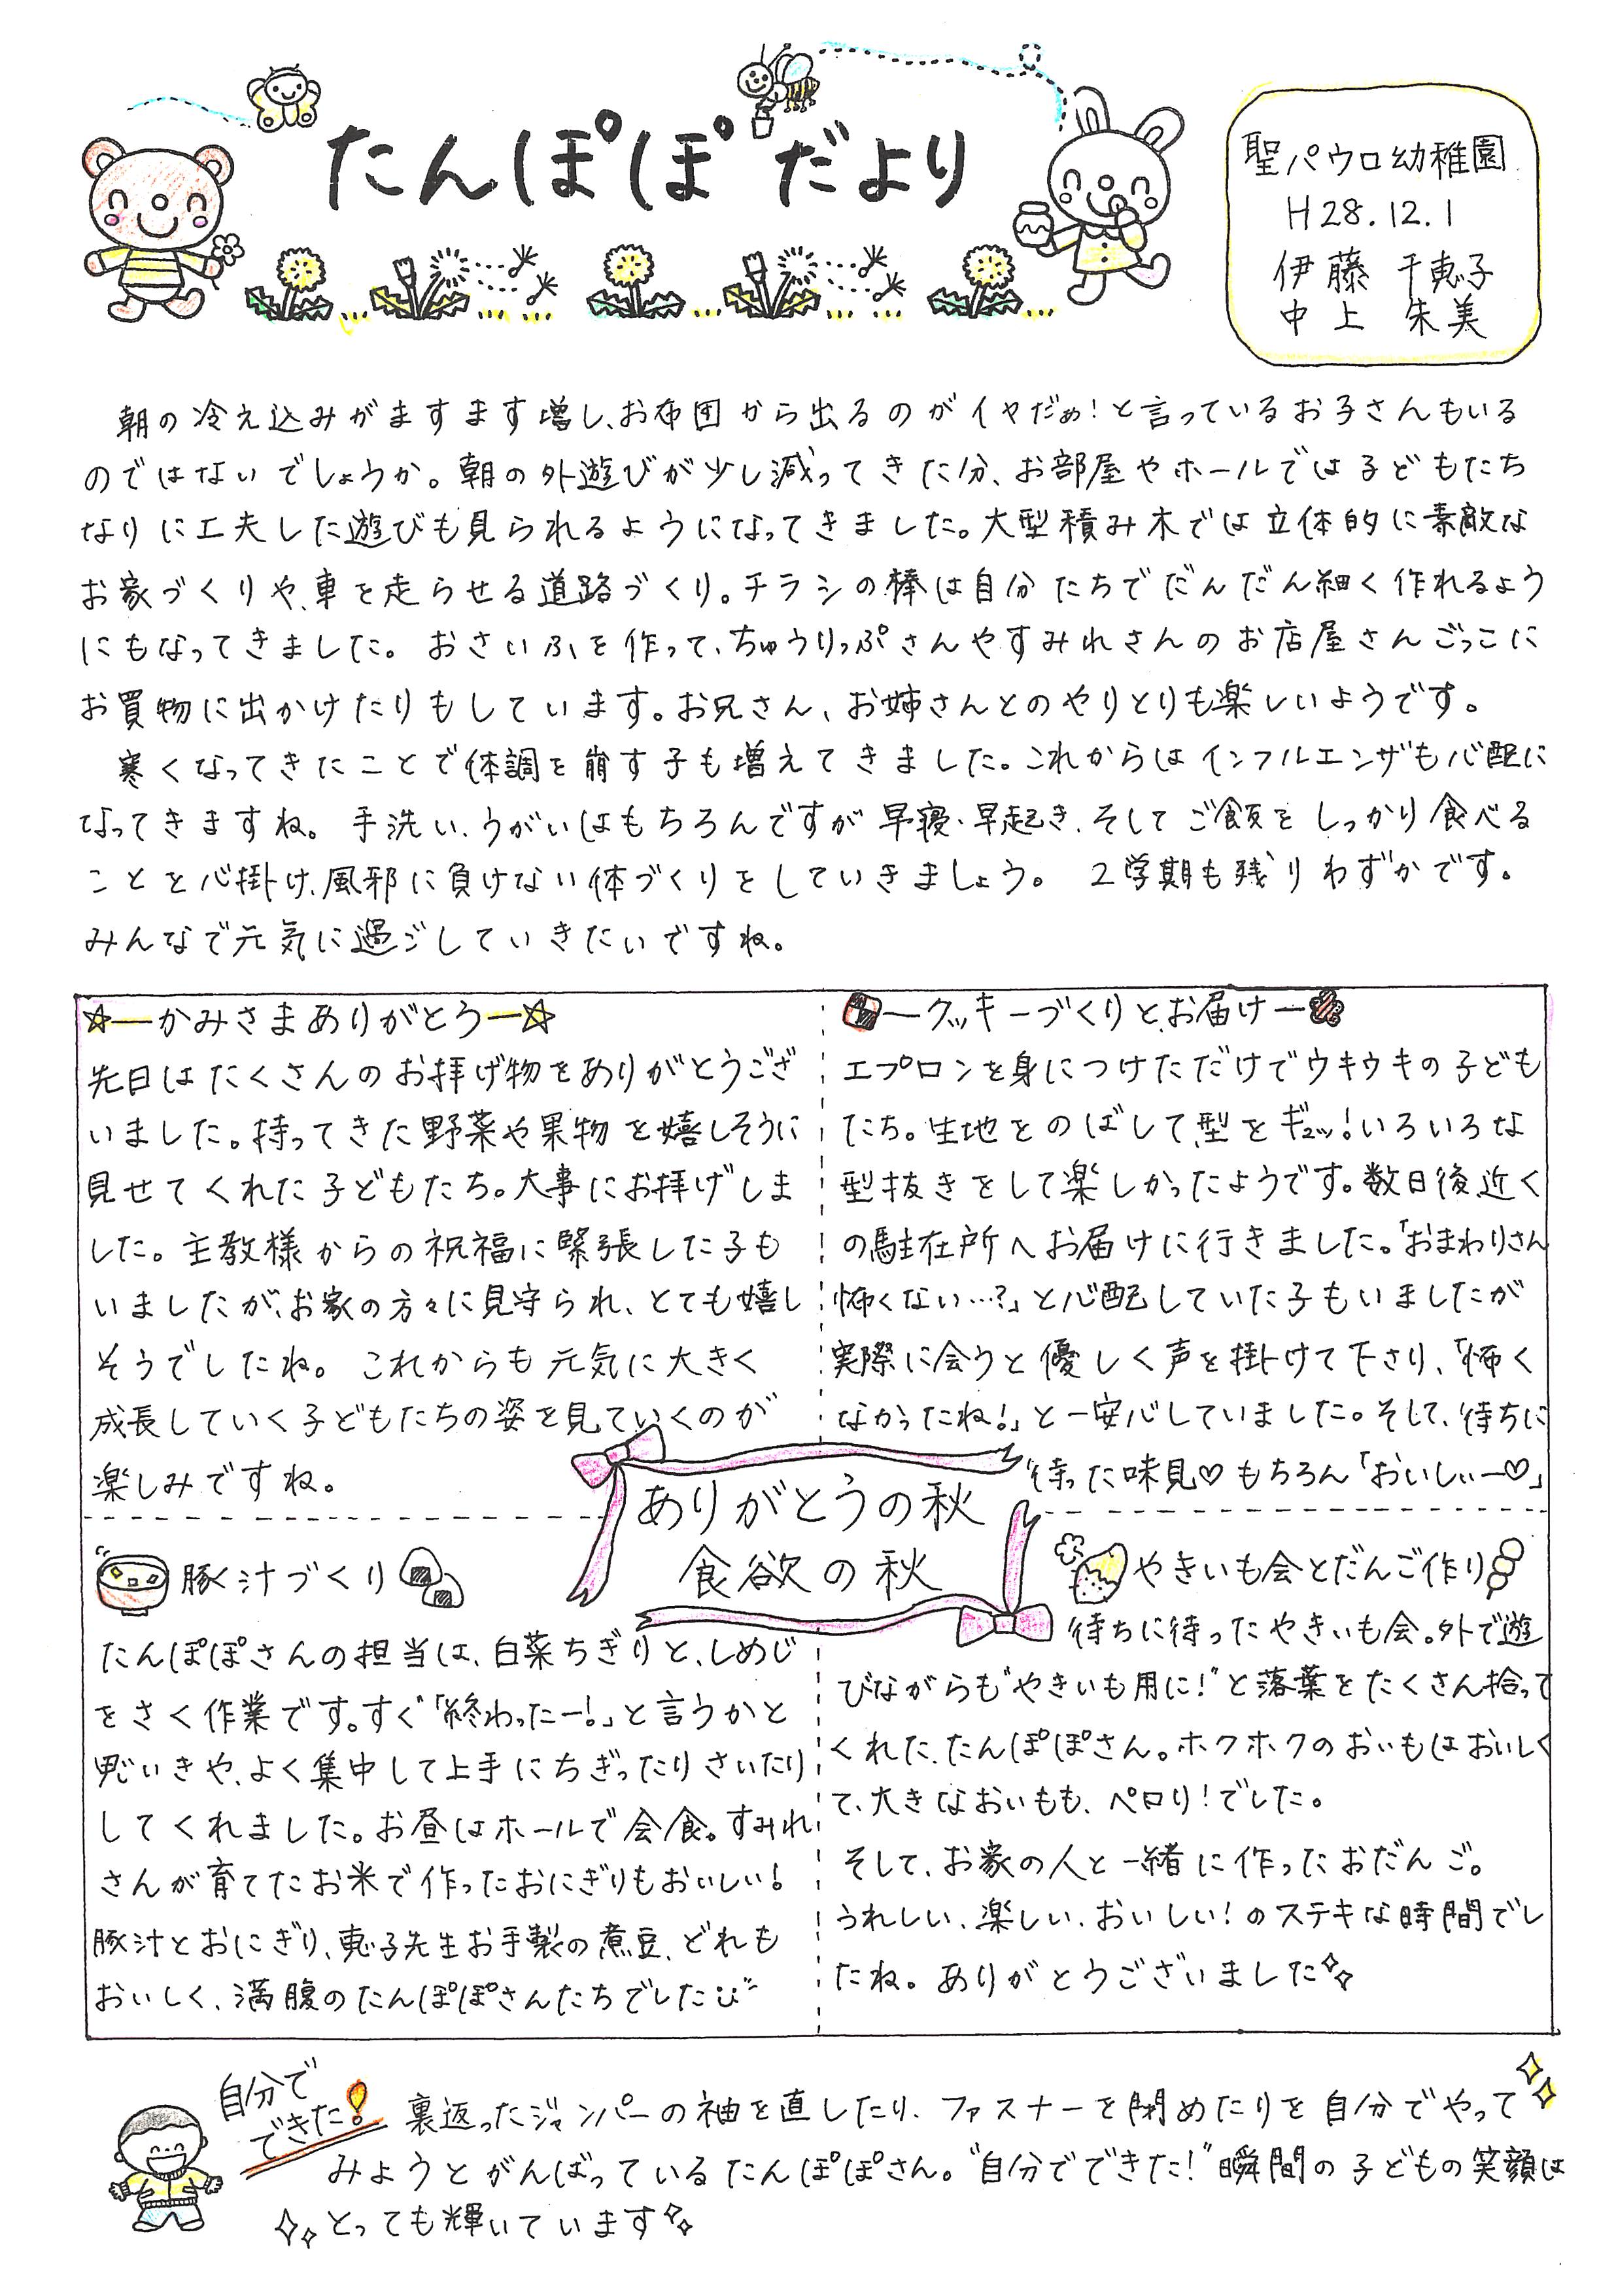 たんぽぽだより
聖パウロ幼稚園
H28.12.1
伊藤 千恵子
中上 朱美
朝の冷え込みがますます増し、お布団から出るのがイヤだぁ!と言っているお子さんもいる
のではないでしょうか。朝の外遊びが少し減ってきた分、お部屋やホールでは子どもたち
なりに工夫した遊びも見られるようになってきました。大型積み木では立体的に素敵な
お家づくりや、車を走らせる道路づくり。チラシの棒は自分たちでだんだん細く作れるよう
にもなってきました。おさいふを作って、ちゅうりっぷさんやすみれさんのお店屋さんごっこに
お買物に出かけたりもしています。お兄さん、お姉さんとのやりとりも楽しいようです。
寒くなってきたことで体調を崩す子も増えてきました。これからはインフルエンザも心配に
なってきますね。手洗い、うがいはもちろんですが早寝・早起き、そしてご飯をしっかり食べる
ことを心掛け、風邪に負けない体づくりをしていきましょう。 2学期も残りわずかです。
みんなで元気に過ごしていきたいですね。
☆―かみさまありがとう―☆
先日はたくさんのお捧げ物をありがとうござ
いました。持ってきた野菜や果物を嬉しそうに
見せてくれた子どもたち。大事にお捧げしま
した。主教様からの祝福に緊張した子も
いましたが、お家の方々に見守られ、とても嬉し
そうでしたね。これからも元気に大きく
成長していく子どもたちの姿を見ていくのが
楽しみですね。
―クッキーづくりとお届け―
エプロンを身につけただけでウキウキの子ども
たち。生地をのばして、型をギュッ!いろいろな
型抜きをして楽しかったようです。数日後、近く
の駐在所へお届けに行きました。「おまわりさん
怖くない…?」と心配していた子もいましたが
実際に会うと優しく声を掛けて下さり、「怖く
なかったね!」と一安心していました。そして、待ちに
待った味見♡もちろん「おいしぃー♡」
ありがとうの秋
食欲の秋
豚汁づくり
たんぽぽさんの担当は、白菜ちぎりと、しめじ
をさく作業です。すぐ「終わったー!」と言うかと
思いきや、よく集中して上手にちぎったりさいたり
してくれました。お昼はホールで会食。すみれ
さんが育てたお米で作ったおにぎりもおいしい!
豚汁とおにぎり、恵子先生お手製の煮豆、どれも
おいしく、満腹のたんぽぽさんたちでした
やきいも会とだんご作り
待ちに待ったやきいも会。外で遊
びながらも"やきいも用に!"と落葉をたくさん拾って
くれた、たんぽぽさん。ホクホクのおいもはおいしく
て、大きなおいもも、ペロリ!でした。
そして、お家の人と一緒に作ったおだんご。
うれしい、楽しい、おいしい!のステキな時間でし
たね。ありがとうございました
自分で
できた!
裏返ったジャンパーの袖を直したり、ファスナーを閉めたりを自分でやって
みようとがんばっているたんぽぽさん。"自分でできた!"瞬間の子どもの笑顔は
とっても輝いています